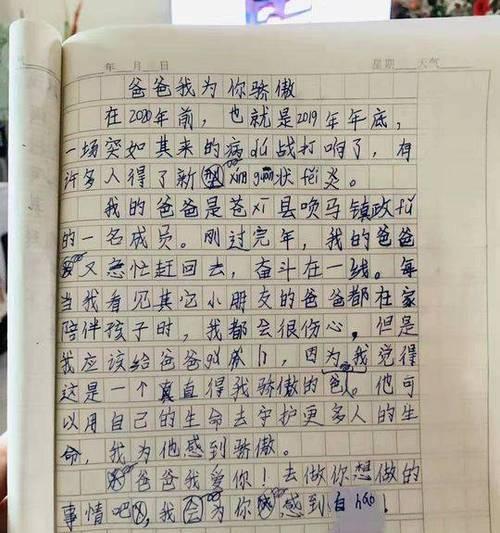 年 月 日 星期 天气
爸爸我为你骄傲
在2020年前，也就是2019年年底，
一场突如其来的病dú战打响了，有
许多人得了新型xīn guān状fèi炎。
我的爸爸是苍xī县唤马镇政fǔ
的一名成员。刚过完年，我的爸爸
又急忙赶回去，奋斗在一线。每
当我看见其它小朋友的爸爸都在家
陪伴孩子时，我都会很伤心，但是
我应该给爸爸gǔ，因为我觉得
这是一个真直得我骄傲的爸。他可
以用自己的生命去守护更多人的生
命，我为他感到骄傲。
爸爸我爱你！去做你想做的
事情吧，我会为你感到自háo！